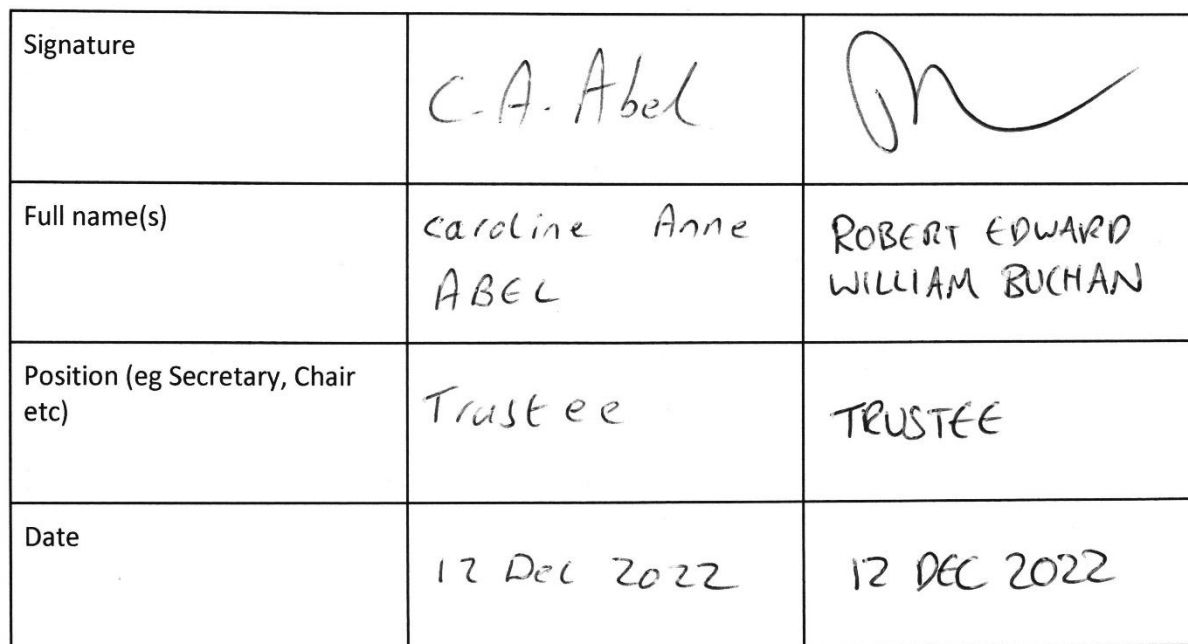 Signature
C.A. Abel
Full name(s)
Caroline Anne
ABEL
ROBERT EDWARD
WILLIAM BUCHAN
Position (eg Secretary, Chair
etc)
Trustee
TRUSTEE
Date
12 Dec 2022
12 DEC 2022